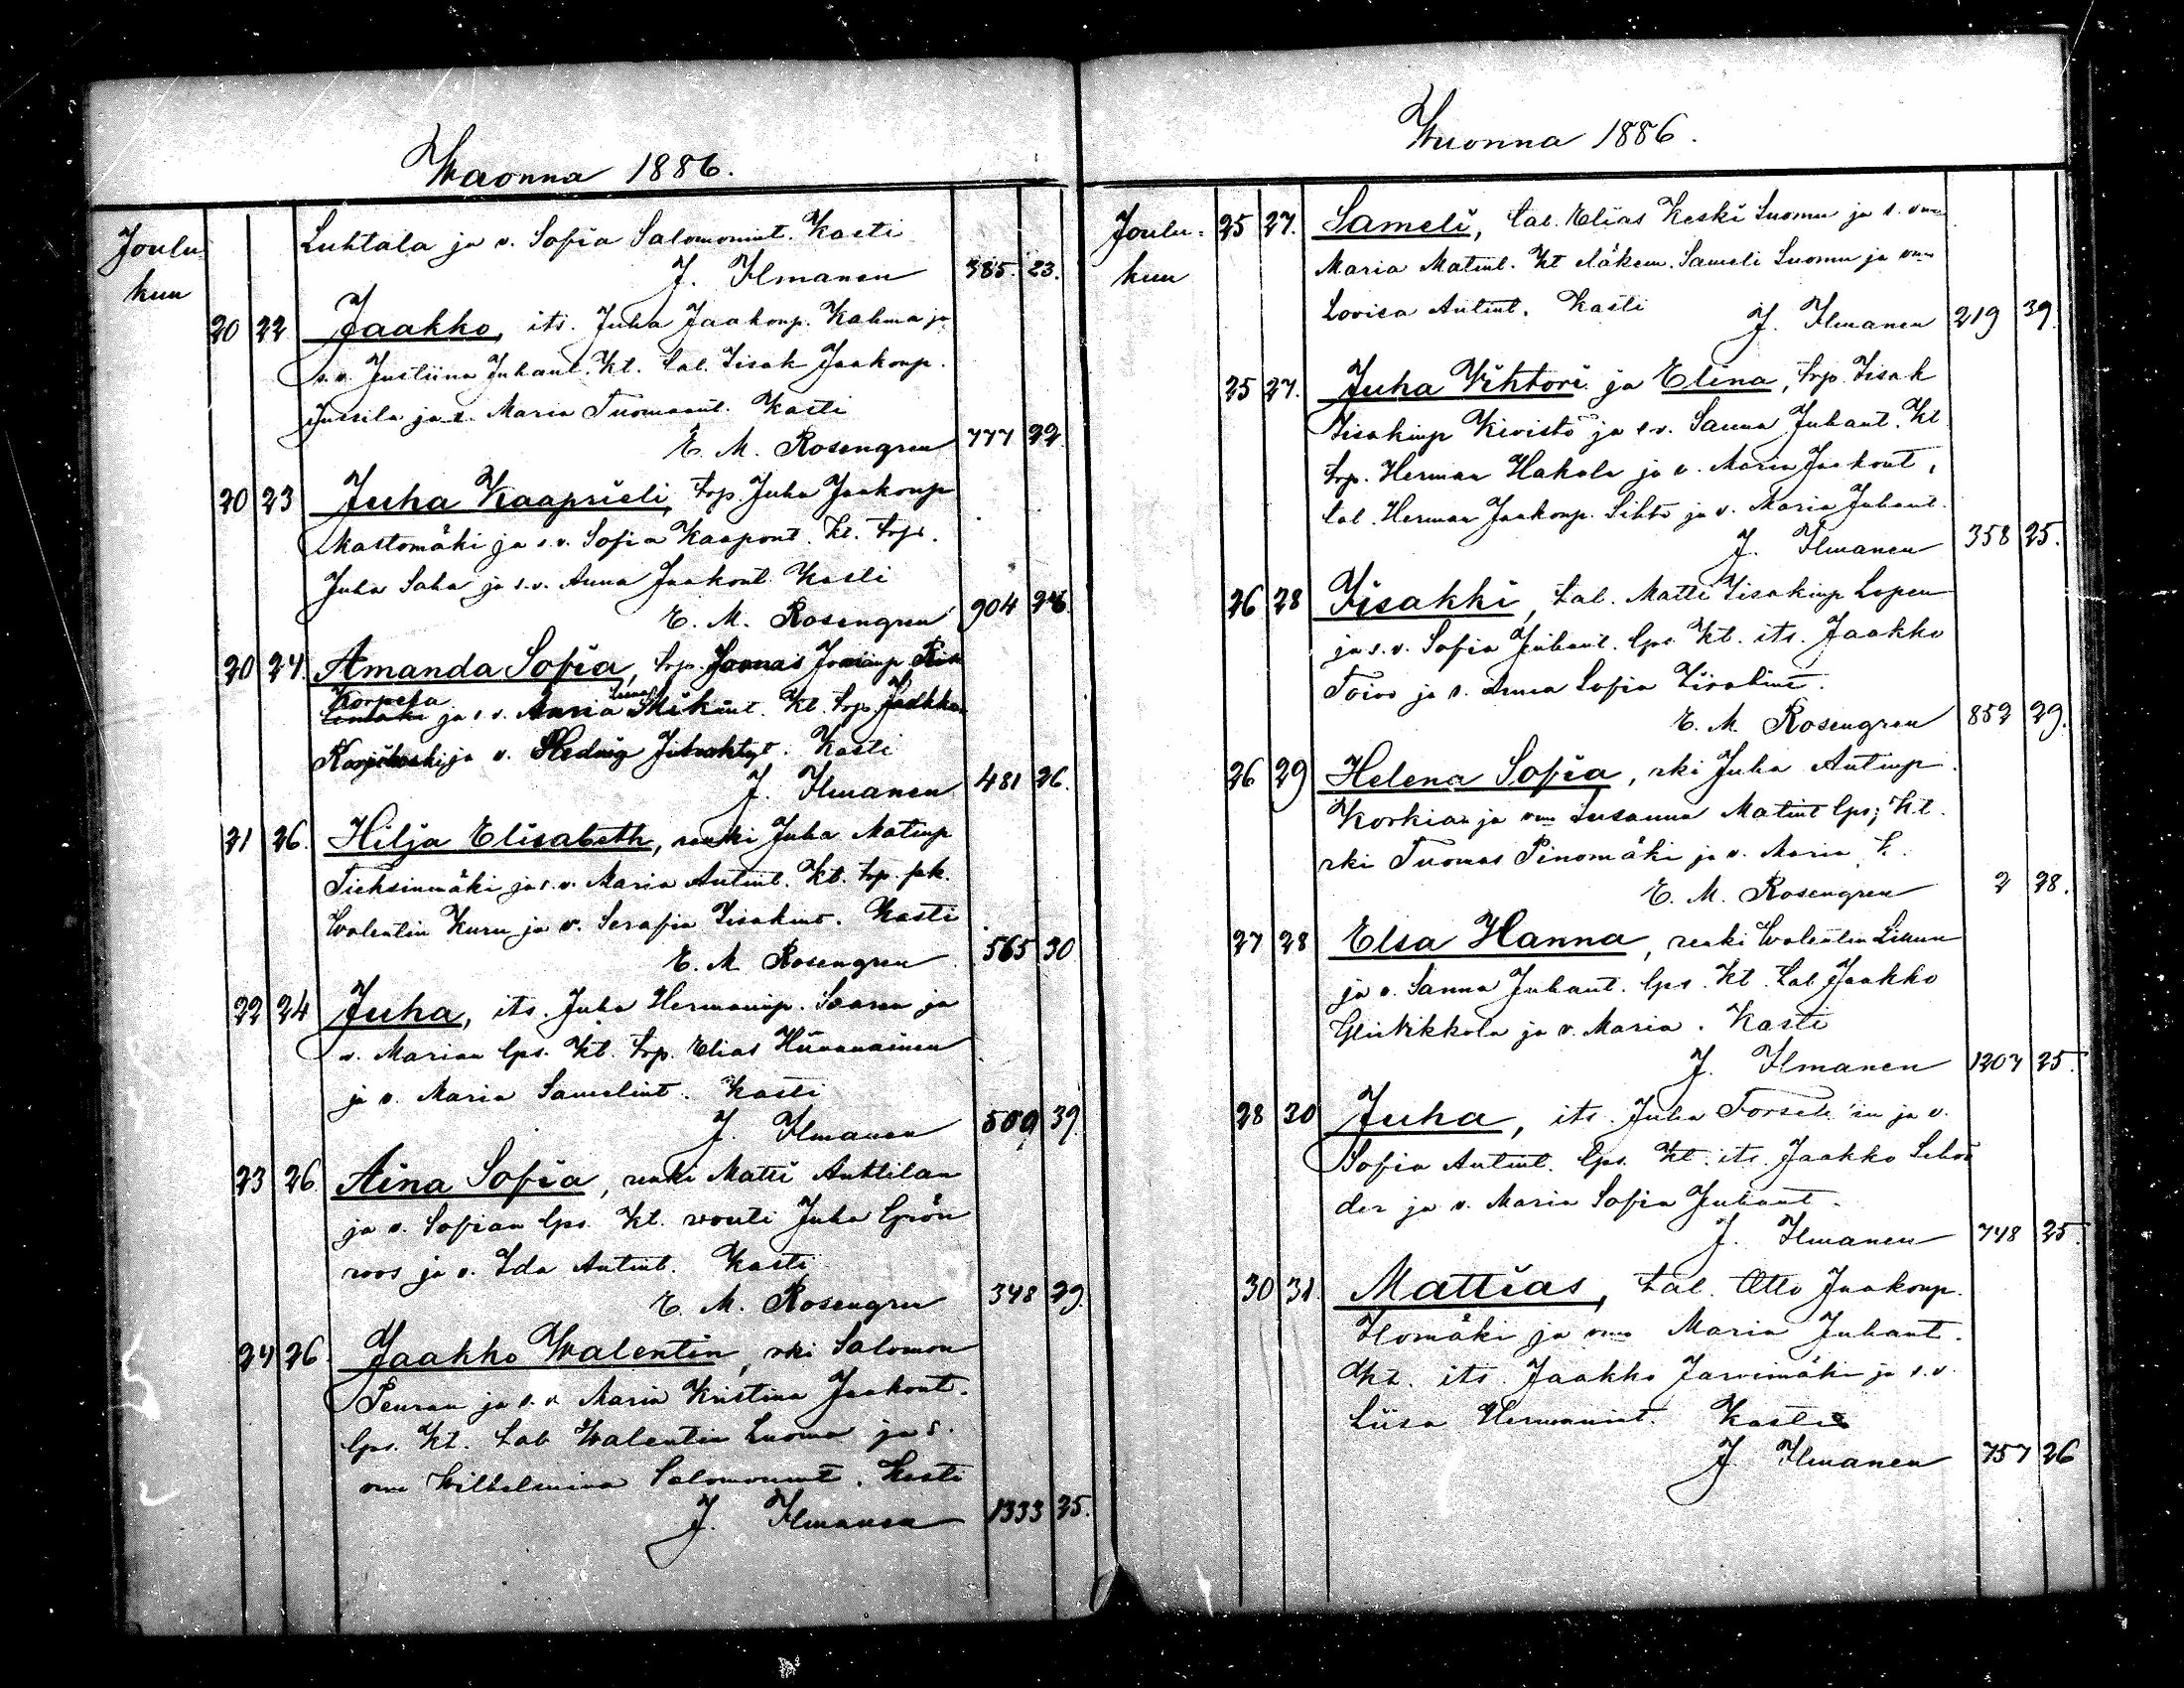 Wuonna 1886.
Joulu
kuu
Luhtala ja v. Sofia Salomonint. Kasti
J. Ilmanen 385. 23.
20 22 Jaakko, its. Juha Jaakonp. Kahma ja
s.v. Justiina Juhant. Kt. tal. Iisak Jaakonp.
Jussila ja v. Maria Tuomaant. Kasti
E. M. Rosengren 777 22.
20 23 Juha Kaaprieli, trp. Juha Jaakonp
Mastomäki ja s.v. Sofia Kaapont. Kt. trp.
Juha Saha ja s.v. Anna Jaakont. Kasti
E. M. Rosengren 904 26.
20 24. Amanda Sofia, trp. Joonas
Korpela
ja s v. Kt. trp. Jaakko
ja v. Hedvig Kasti
J. Ilmanen 481 26.
21 26. Hilja Elisabeth, renki Juha Matinp
Tieksinmäki ja s.v. Maria Antint. Kt. trp. pk.
Walentin Kuru ja v. Serafia Iisakint. Kasti
E. M. Rosengren 565 30
22 24 Juha, its. Juha Hermaninp. Saaren ja
v. Marian lps. Kt. trp. Elias
ja v. Maria Samelint. Kasti
J. Ilmanen 509 39.
23 26. Aina Sofia, renki Matti Anttilan
ja v. Sofian lps. Kt. vouti Juha Grön
roos ja v. Ida Antint. Kasti
E. M. Rosengren 348 29.
24 26. Jaakko Walentin, rki Salomon
Peuran ja s. v. Maria Kristina Jaakont.
lps. Kt. tal. Walentin Luoma ja s.
vmo Wilhelmina Salomonint. Kasti
J. Ilmanen 1333 25.
Wuonna 1886.
Joulu-
kuu
25 27. Sameli, tal. Elias Keski Luoma ja s. vmo
Maria Matint. Kt eläkem. Sameli Luoma ja vmo
Lovisa Antint. Kasti
J. Ilmanen 219 39.
25 27. Juha Vihtori ja Elina, trp. Iisak
Iisakinp Kivistö ja s v. Sanna Juhant. Kt
trp. Herman Hakala ja v. Maria Jaakont,
tal. Herman Jaakonp. Sihto ja v. Maria Juhant.
J. Ilmanen 358 25.
26 28 Iisakki, tal. Matti Iisakinp Lopen
ja s. v. Sofia Juhant. lps. Kt. its. Jaakko
Toivo ja v. Anna Sofia
E. M. Rosengren 852 29.
26 29 Helena Sofia, rki Juha Antinp.
Korkian ja vmo Susanna Matint lps; Kt.
rki Tuomas Pinomäki ja v. Maria
E. M. Rosengren 2 28.
27 28 Elsa Hanna, renki Walentin
ja v. Sanna Juhant. lps. Kt. tal Jaakko
Yliviikkola ja v. Maria. Kasti
J. Ilmanen 1207 25.
28 30 Juha, its. Juha ja v.
Sofia Antint. lps. Kt. its. Jaakko Schrö
der ja v. Maria Sofia Juhant.
J. Ilmanen 748 25.
30 31. Mattias, tal. Otto Jaakonp.
Ilomäki ja vmo Maria Juhant.
Kt. its. Jaakko Jarvimäki ja s.v.
Liisa Hermanint. Kasti
J. Ilmanen 757 26